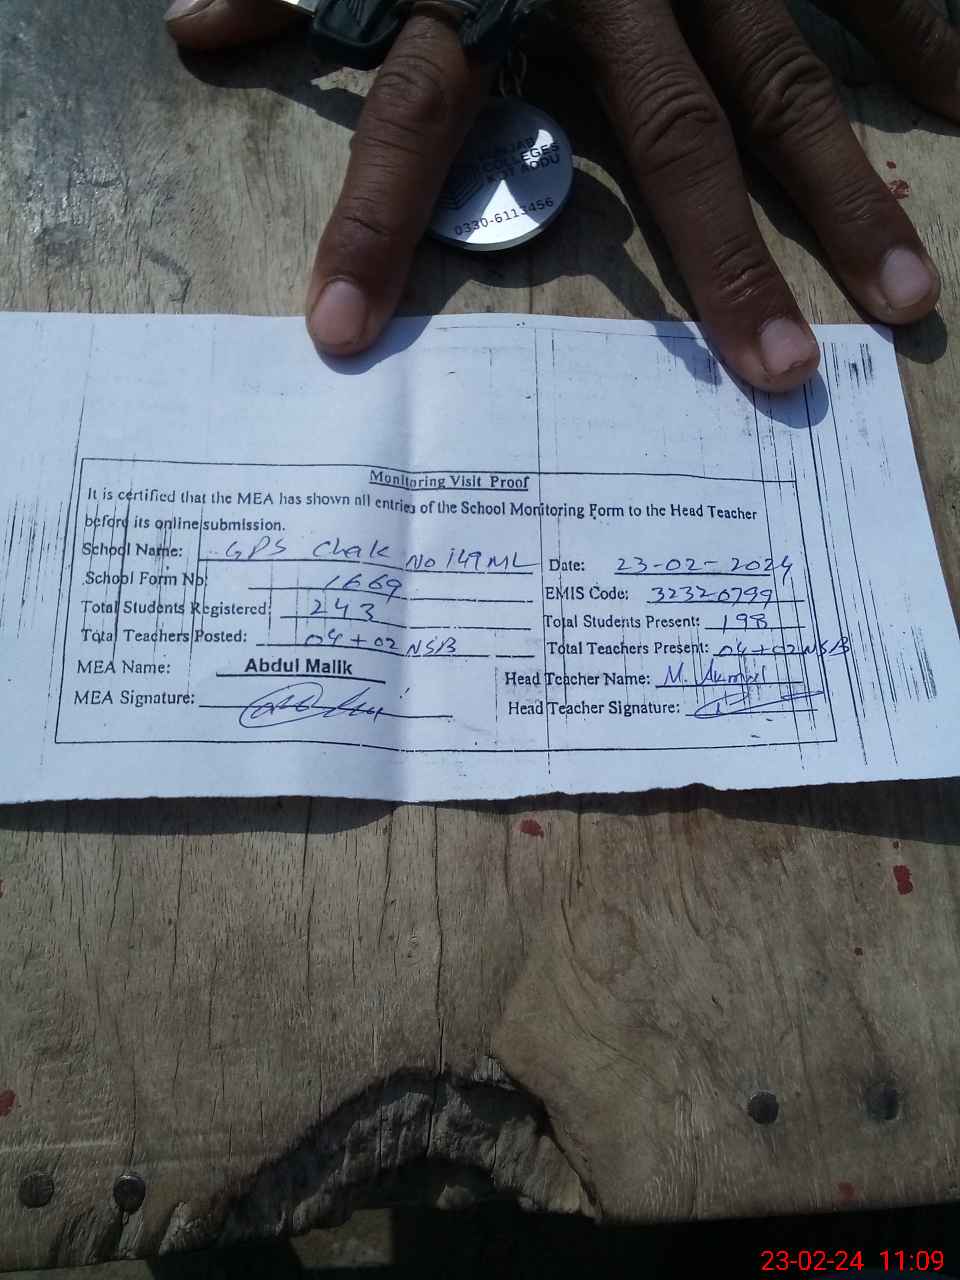 PUNJAB
COLLEGES
KOT ADDU
0330-6113456
Monitoring Visit Proof
It is certified that the MEA has shown all entries of the School Monitoring Form to the Head Teacher
before its online submission.
School Name: GPS Chak No 149 ML Date: 23-02-2024
School Form No: 1669 EMIS Code: 32320799
Total Students Registered: 243 Total Students Present: 198
Total Teachers Posted: 04+02 NSB Total Teachers Present: 04+02 NSB
MEA Name: Abdul Malik Head Teacher Name: M.
MEA Signature: Head Teacher Signature:
23-02-24 11:09